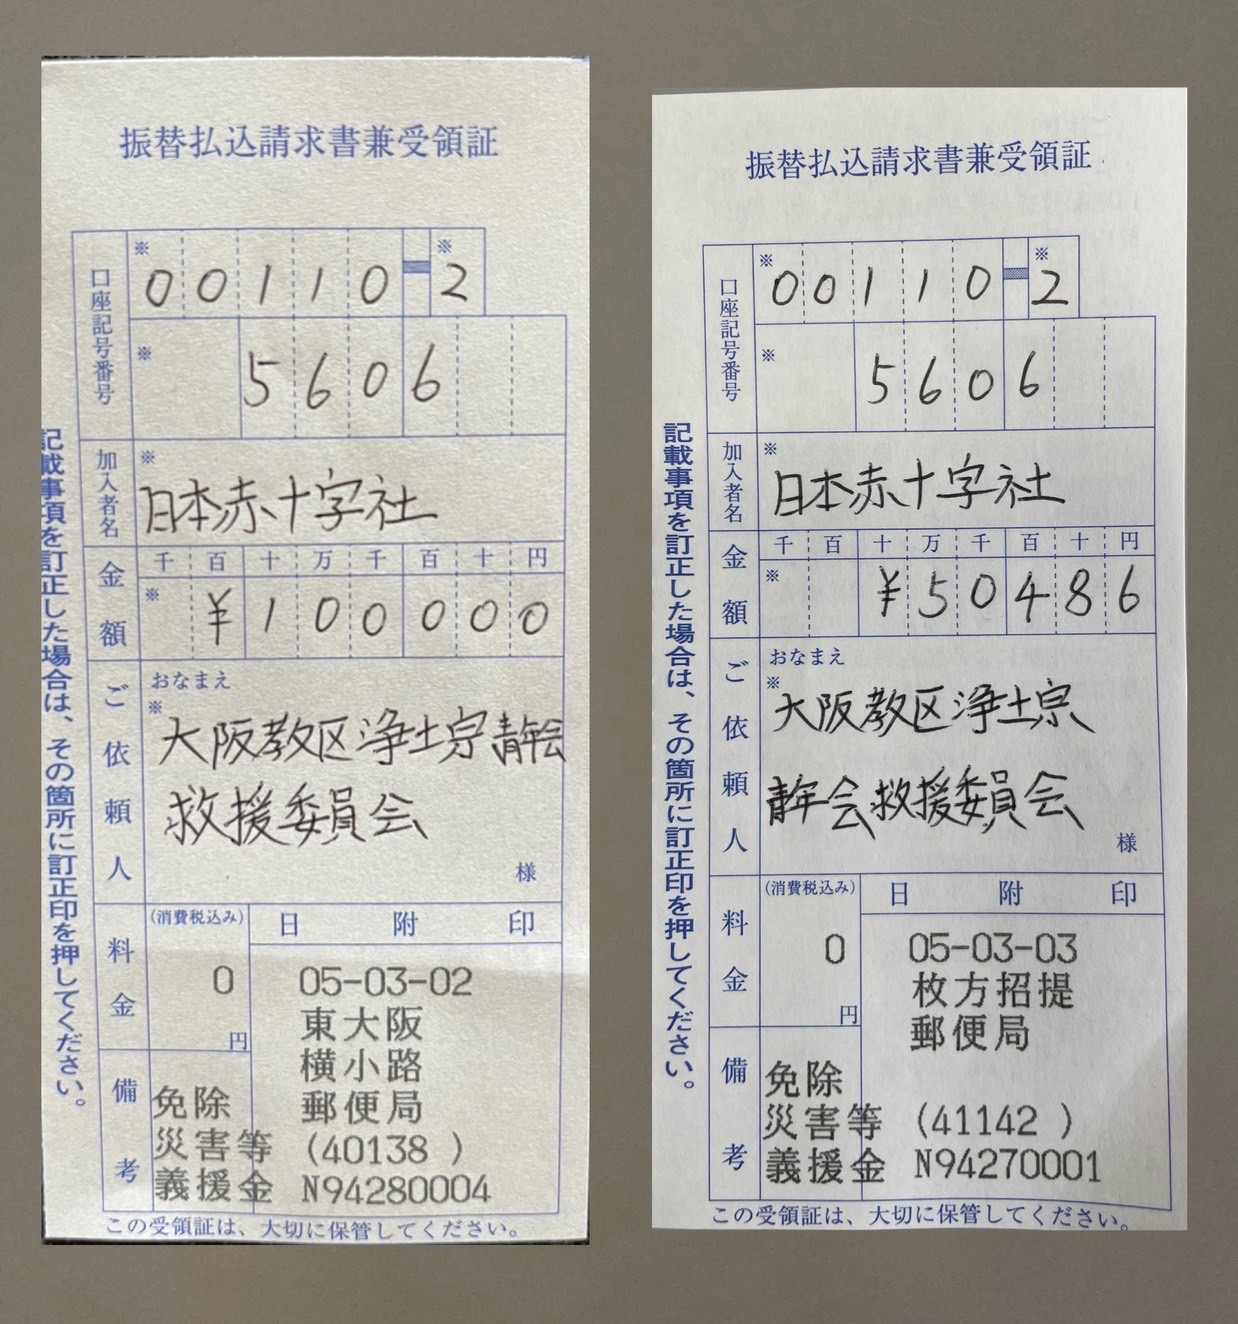 振替払込請求書兼受領証
口座記号番号
※ 00110-2
※ 5606
加入者名
※
日本赤十字社
金額
千百十万千百十円
※ ¥100000
ご依頼人
おなまえ
※
大阪教区浄土宗青年会
救援委員会
様
料金
(消費税込み)
0
円
日附印
05-03-02
東大阪
横小路
郵便局
備考
免除
災害等 (40138 )
義援金 N94280004
この受領証は、大切に保管してください。
記載事項を訂正した場合は、その箇所に訂正印を押してください。
振替払込請求書兼受領証
口座記号番号
※ 00110-2
※ 5606
加入者名
※
日本赤十字社
金額
千百十万千百十円
※ ¥50486
ご依頼人
おなまえ
※
大阪教区浄土宗
青年会救援委員会
様
料金
(消費税込み)
0
円
日附印
05-03-03
枚方招提
郵便局
備考
免除
災害等 (41142 )
義援金 N94270001
この受領証は、大切に保管してください。
記載事項を訂正した場合は、その箇所に訂正印を押してください。